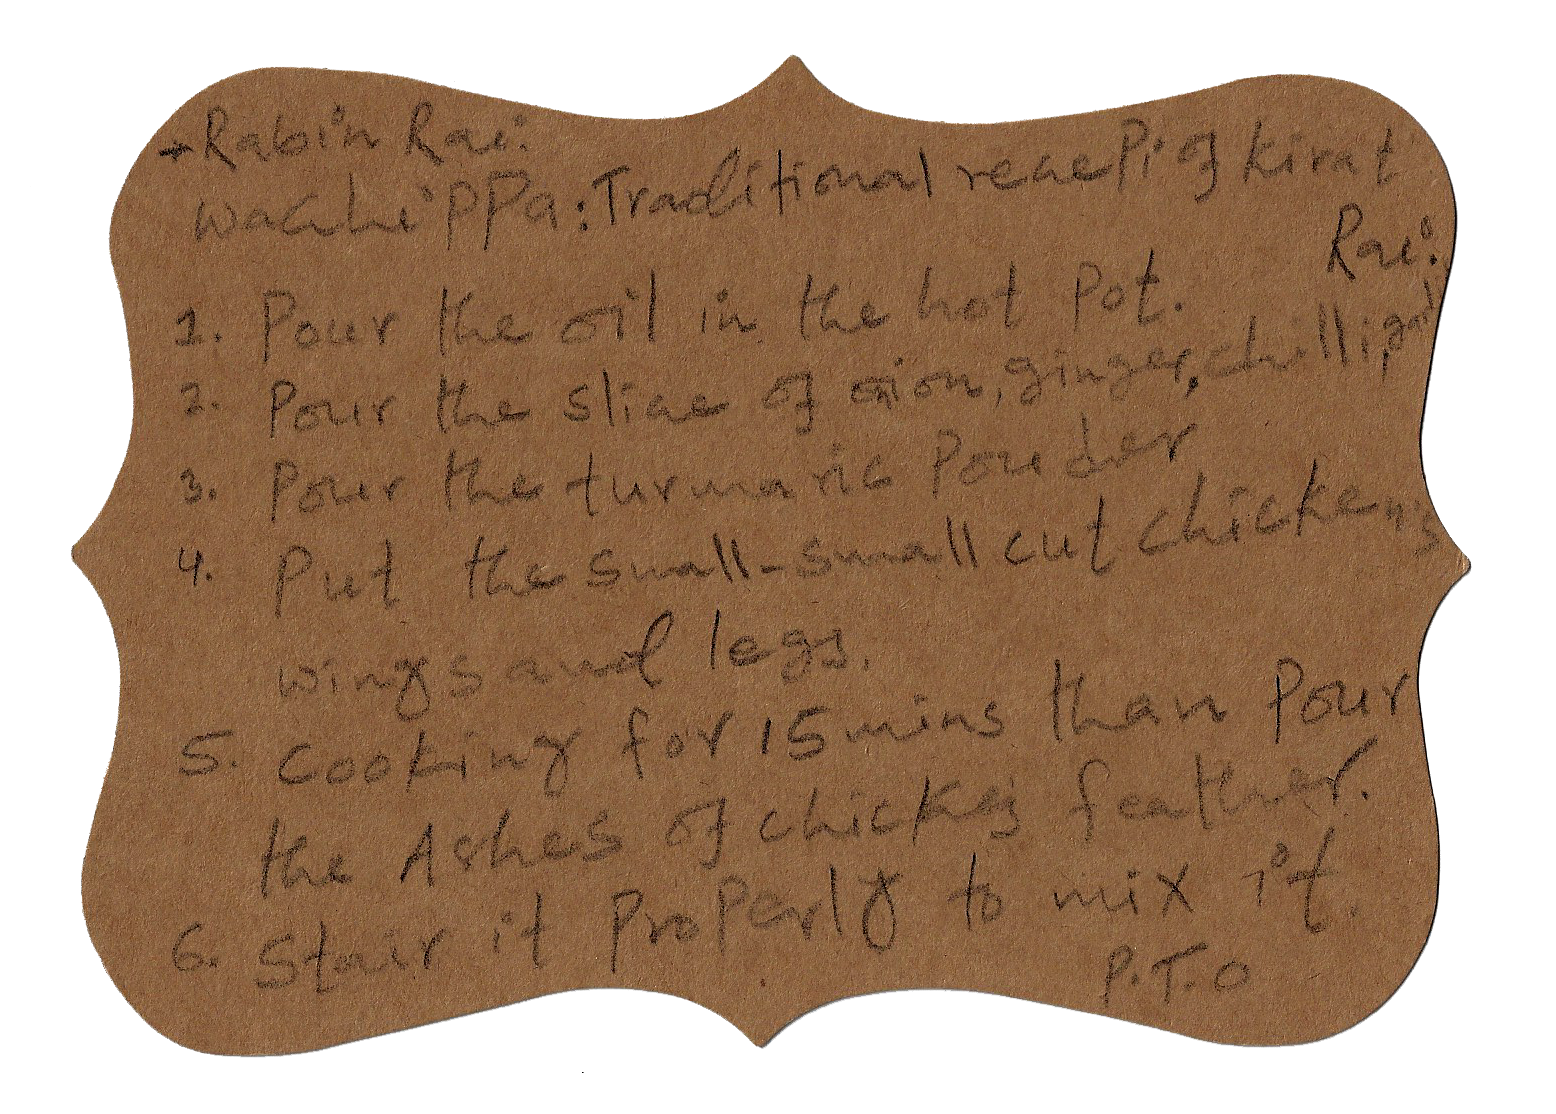 →Rabin Rai:
Wachhi'ppa: Traditional receepi of kirat
Rai:
1. Pour the oil in the hot pot.
2. Pour the slice of onion, ginger, chilli,
3. Pour the turmaric Powder
4. Put the small-small cut chickens
wings and legs.
5. Cooking for 15 mins than Pour
the Ashes of chicken's feather.
6. Stair it Properly to mix it.
P.T.O